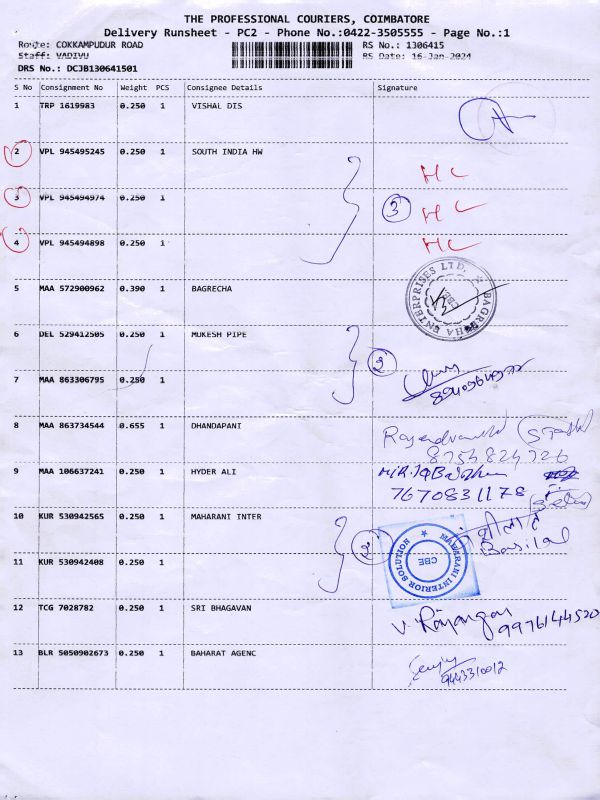 THE PROFESSIONAL COURIERS, COIMBATORE
Delivery Runsheet - PC2 - Phone No.:0422-3505555 - Page No.:1
Route: COKKAMPUDUR ROAD
RS No.: 1306415
Staff: VADIVU
RS Date: 16-Jan-2024
DRS No.: DCJB130641501
S No Consignment No Weight PCS Consignee Details Signature
1 TRP 1619983 0.250 1 VISHAL DIS
2 VPL 945495245 0.250 1 SOUTH INDIA HW HC
3 VPL 945494974 0.250 1 3 HC
4 VPL 945494898 0.250 1 HC
5 MAA 572900962 0.390 1 BAGRECHA
BAGRECHA ENTERPRISES LTD.
CBE
6 DEL 529412505 0.250 1 MUKESH PIPE 2
7 MAA 863306795 0.250 1
8 MAA 863734544 0.655 1 DHANDAPANI
8754824726
9 MAA 106637241 0.250 1 HYDER ALI
7670831178
10 KUR 530942565 0.250 1 MAHARANI INTER 2
MAHARANI INTERIOR SOLUTION
CBE
11 KUR 530942408 0.250 1
12 TCG 7028782 0.250 1 SRI BHAGAVAN
9976144520
13 BLR 5050902673 0.250 1 BAHARAT AGENC
9443310012